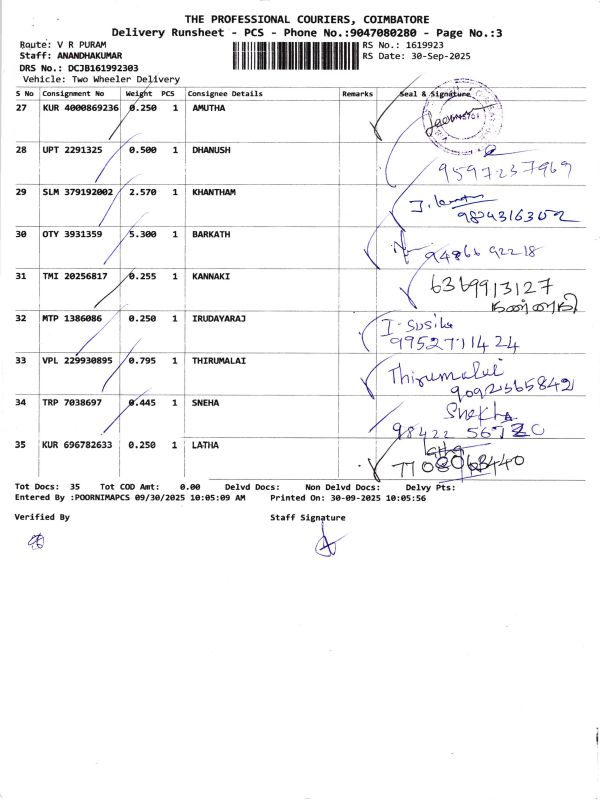 THE PROFESSIONAL COURIERS, COIMBATORE
Delivery Runsheet - PCS - Phone No.:9047080280 - Page No.:3
Route: V R PURAM RS No.: 1619923
Staff: ANANDHAKUMAR RS Date: 30-Sep-2025
DRS No.: DCJB161992303
Vehicle: Two Wheeler Delivery
S No Consignment No Weight PCS Consignee Details Remarks Seal & Signature
27 KUR 4000869236 0.250 1 AMUTHA
28 UPT 2291325 0.500 1 DHANUSH
9597237969
29 SLM 379192002 2.570 1 KHANTHAM
9824316302
30 OTY 3931359 5.300 1 BARKATH
94866 92218
31 TMI 20256817 0.255 1 KANNAKI 6369913127
கண்ணகி
32 MTP 1386086 0.250 1 IRUDAYARAJ I. Susila
9952771424
33 VPL 229930895 0.795 1 THIRUMALAI Thirumalai
9092565842
34 TRP 7038697 0.445 1 SNEHA Sneha
98422 56720
35 KUR 696782633 0.250 1 LATHA
7708068440
Tot Docs: 35 Tot COD Amt: 0.00 Delvd Docs: Non Delvd Docs: Delvy Pts:
Entered By :POORNIMAPCS 09/30/2025 10:05:09 AM Printed On: 30-09-2025 10:05:56
Verified By Staff Signature